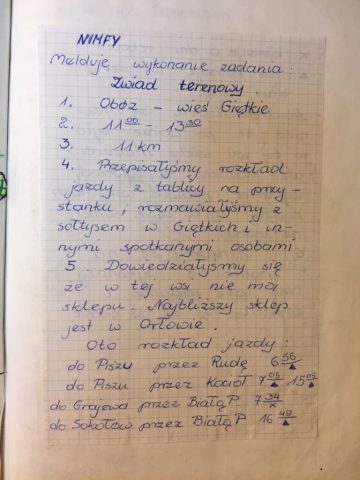 NIMFY
Melduję wykonanie zadania:
Zwiad terenowy.
1. Obóz - wieś Giętkie
2. 11⁰⁰ - 13³⁰
3. 11 km
4. Przepisałyśmy rozkład
jazdy z tablicy na przy-
stanku, rozmawiałyśmy z
sołtysem w Giętkich i in-
nymi spotkanymi osobami
5. Dowiedziałyśmy się
że w tej wsi nie ma
sklepu. Najbliższy sklep
jest w Orłowie.
Oto rozkład jazdy:
do Piszu przez Rudę 6⁵⁶ ▲
do Piszu przez Kocioł 7⁰⁵ ▲ 15⁰⁵ ▲
do Grajewa przez Białą P 7³⁴ x
do Sokołów przez Białą P 16⁴⁹ ▲